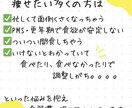 痩せたい多くの方は
忙しくて面倒くさくなっちゃう
PMS・更年期で食欲が安定しない
ついつい間食しちゃう
いけないとわかっていて
食べたり、食べなかったりで
調整しがち....
といった悩みを抱え